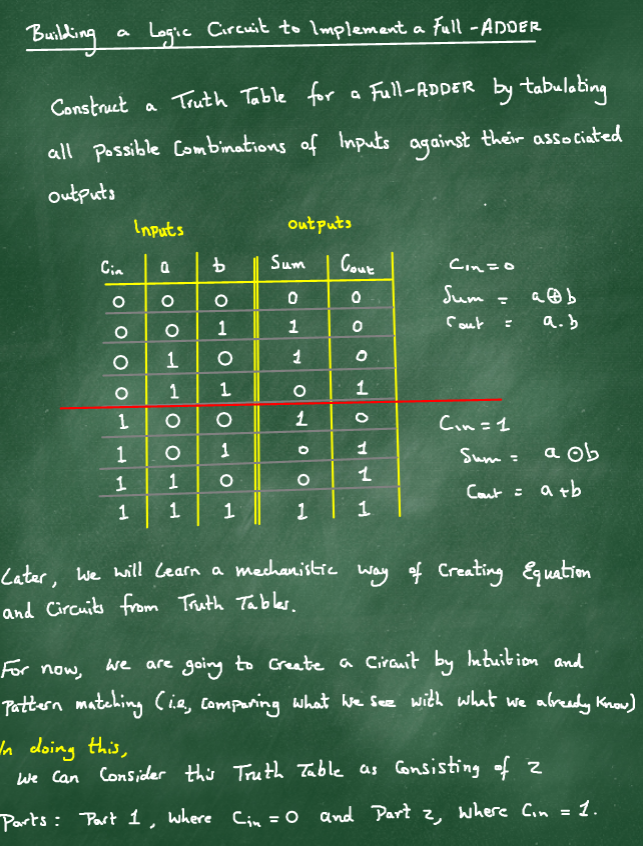 Building a Logic Circuit to Implement a Full-ADDER
Construct a Truth Table for a Full-ADDER by tabulating
all Possible Combinations of Inputs against their associated
outputs
Inputs outputs
Cin a b Sum Cout
0 0 0 0 0
0 0 1 1 0
0 1 0 1 0
0 1 1 0 1
1 0 0 1 0
1 0 1 0 1
1 1 0 0 1
1 1 1 1 1
Cin=0
Sum = a⊕b
Cout = a.b
Cin=1
Sum = a⊙b
Cout = a+b
Later, We will Learn a mechanistic way of Creating Equation
and Circuits from Truth Tables.
For now, we are going to Create a Circuit by Intuition and
Pattern matching (i.e, Comparing what we see with what we already know)
In doing this,
we can Consider this Truth Table as Consisting of 2
Parts: Part 1, where Cin = 0 and Part 2, where Cin = 1.